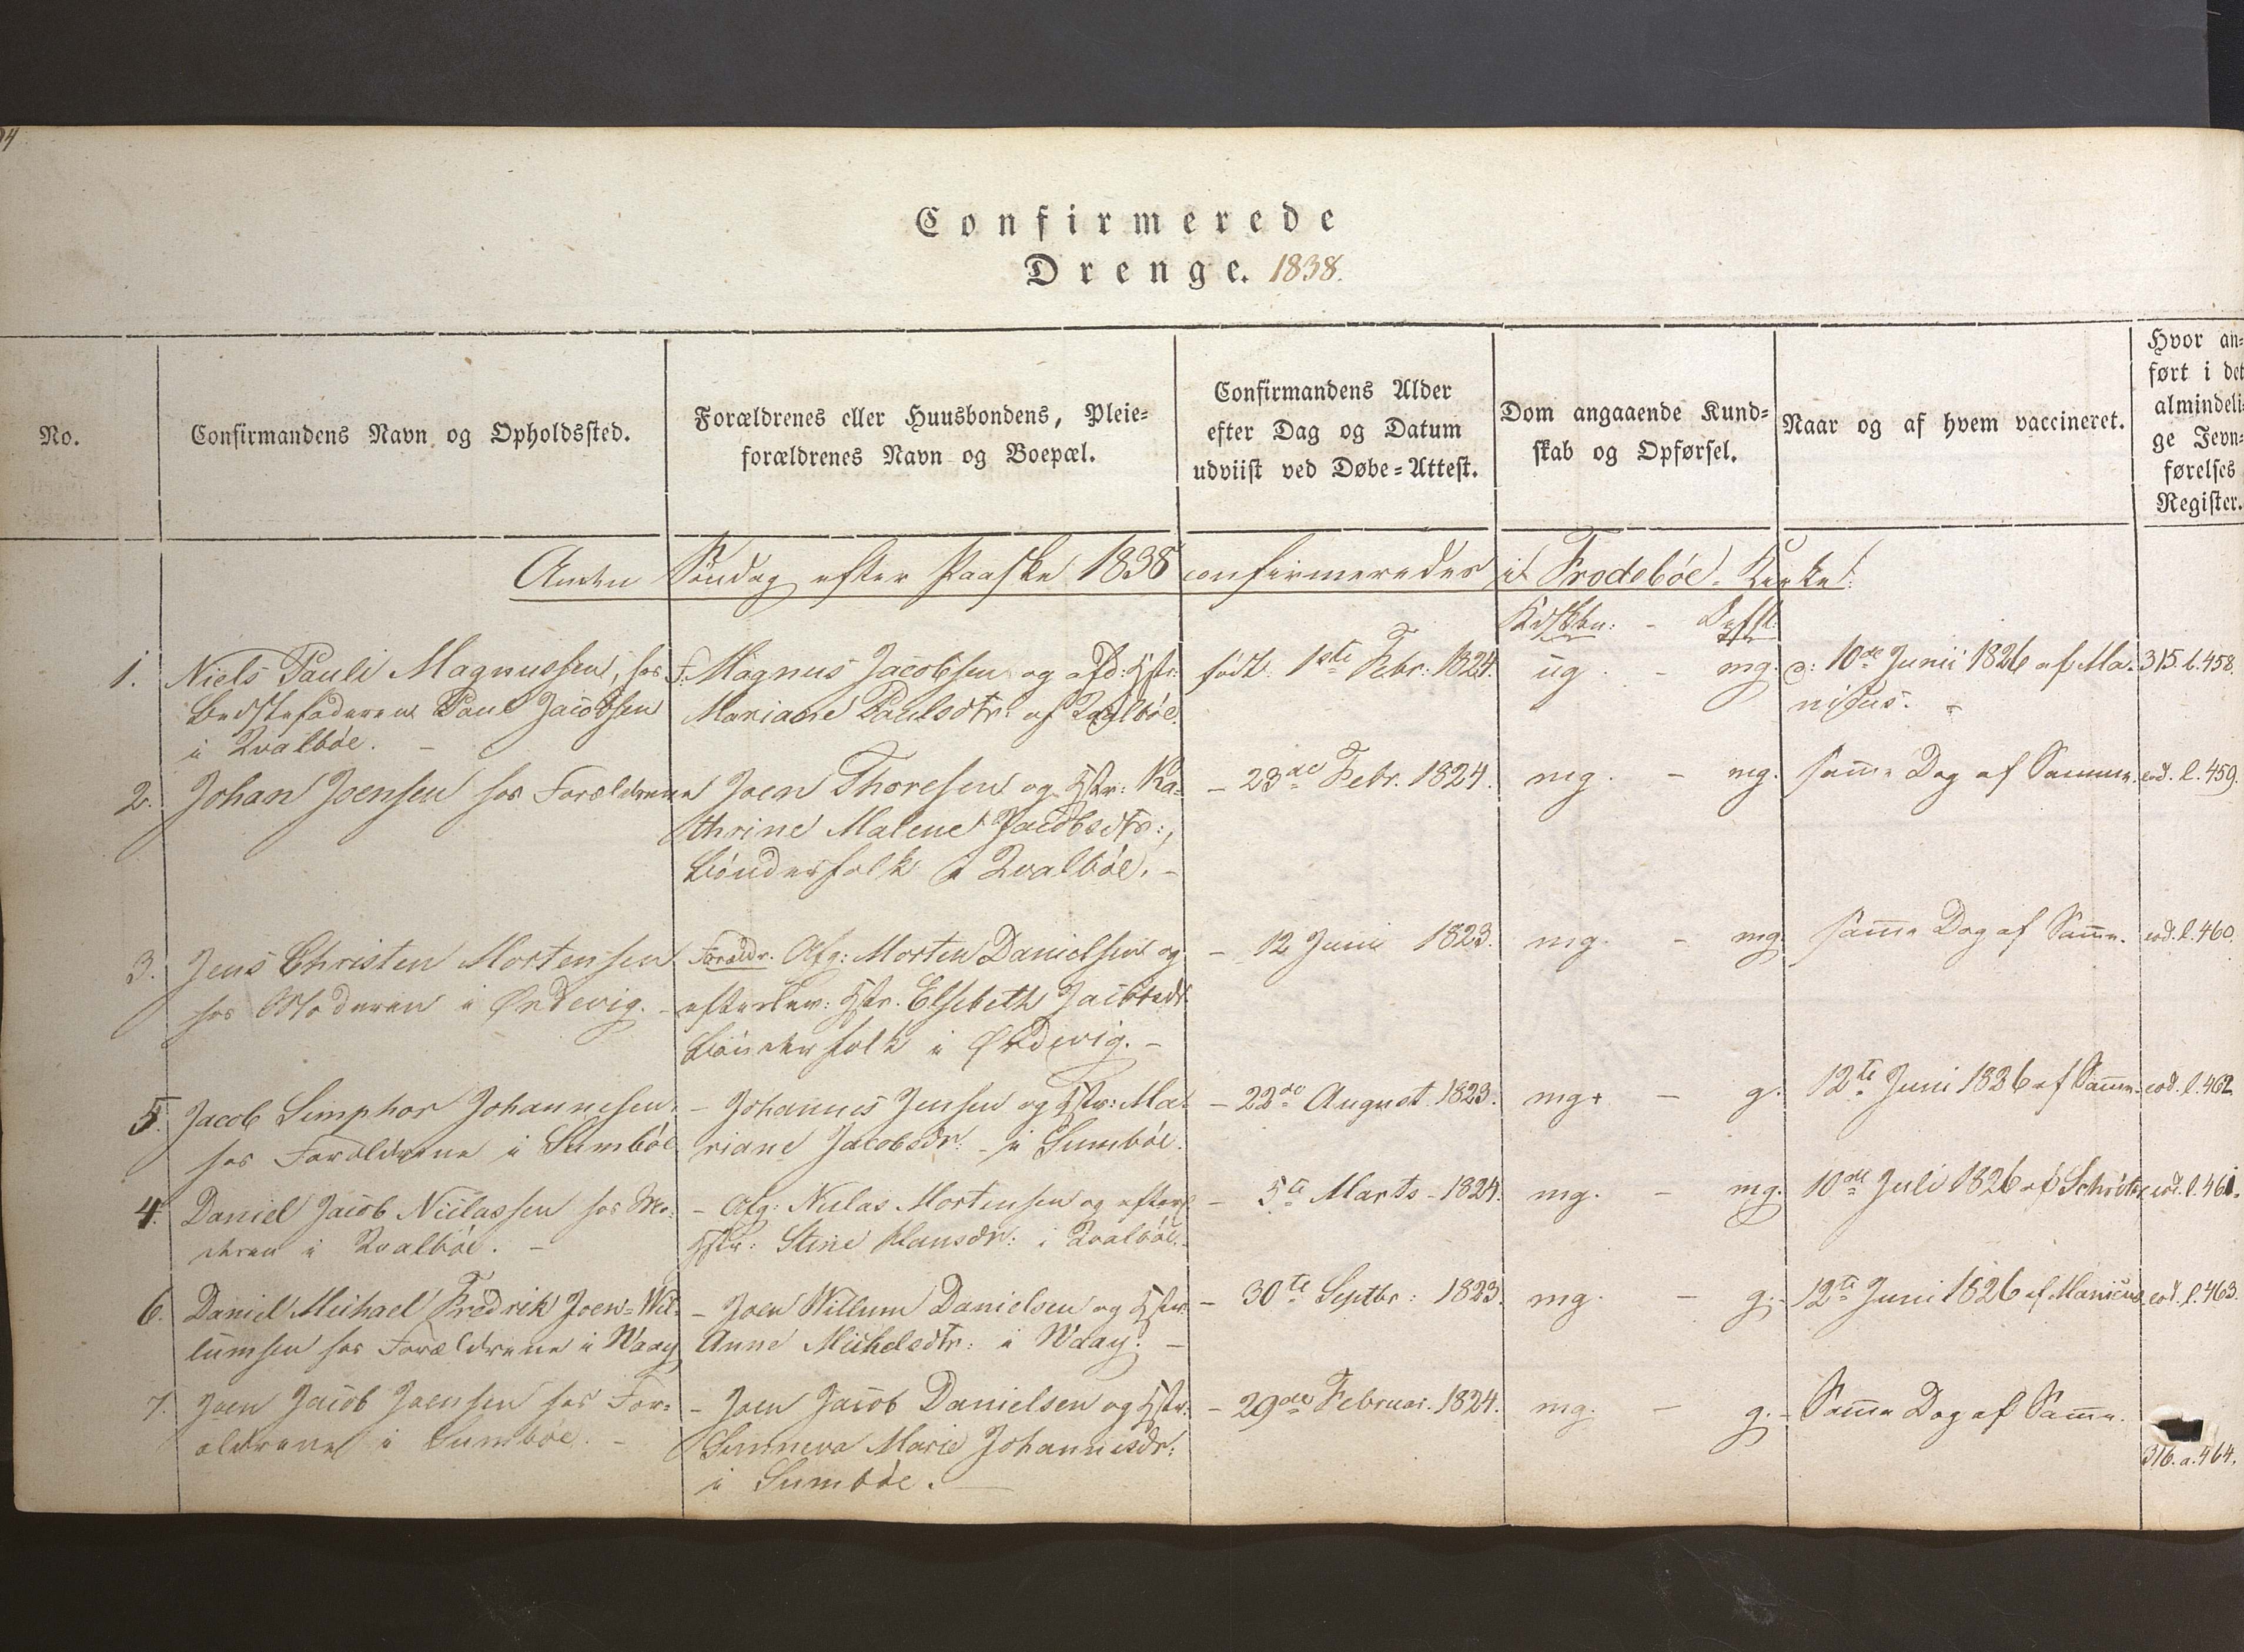 Confirmerede
Drenge. 1838.
No.
Confirmandens Navn og Opholdssted.
Forældrenes eller Huusbondens, Pleie=
forældrenes Navn og Boepæl.
Confirmandens Alder
efter Dag og Datum
udviist ved Døbe=Attest.
Dom angaaende Kund=
skab og Opførsel.
Naar og af hvem vaccineret.
Hvor an=
ført i det
almindeli=
ge Jevn=
førelses
Register.
Anden Søndag efter Paaske 1838 confirmeredes i Frodebøe Kirke:
Kdskbn: - Opfsl:
1. Niels Pauli Magnussen, hos
Bedstefaderen Paul Jacobsen
i Qvalbøe. -
F: Magnus Jacobsen og afd: Hstr:
Mariane Paulsdtr: af Qvalbøe.
født: 1ste Febr: 1824.
ug. - mg.
d: 10de Junii 1826 af Ma-
nicus.
315. l. 458.
2. Johan Joensen hos Forældrene
Joen Thoresen og Hstr: Ka=
thrine Malene Jacobsdtr:,
Bønderfolk i Qvalbøe. -
- 23de Febr. 1824.
mg. - mg.
samme Dag af Samme.
eod. l. 459.
3. Jens Christen Mortensen
hos Moderen i Ørdevig. -
Forældr. Afg: Morten Danielsen og
efterlev: Hstr. Elsebeth Jacobsdt.
Bønderfolk i Ørdevig. -
- 12 Juni 1823.
mg. - mg.
samme Dag af Samme.
eod. l. 460.
5. Jacob Simphor Johannesen
hos Forældrene i Sumbøe
- Johannes Jensen og Hstr: Ma=
riane Jacobsdr: - i Sumbøe.
- 22de August 1823.
mg+ - g.
12te Juni 1826 af Samme.
eod. l. 462.
4. Daniel Jacob Niclassen hos Mo=
deren i Qvalbøe. -
- Afg: Niclas Mortensen og efterl
Hstr: Stine Hansdr: i Qvalbøe.
- 5te Marts - 1824.
mg. - mg.
10de Juli 1826 af Schrøter
eod. l. 461.
6. Daniel Michael Fredrik Joen=Wil=
lumsen hos Forældrene i Waag
- Joen Willum Danielsen og Hstr.
Anne Michelsdtr: i Waag. -
- 30te Septbr: 1823.
mg. - g.
12te Juni 1826 af Manicus
eod. l. 463.
7. Joen Jacob Joensen hos For=
ældrene i Sumbøe. -
- Joen Jacob Danielsen og Hstr:
Sunneva Marie Johannesdr:
i Sumbøe. -
- 29de Februar. 1824.
mg. - g. -
Samme Dag af Samme.
316. a. 464.